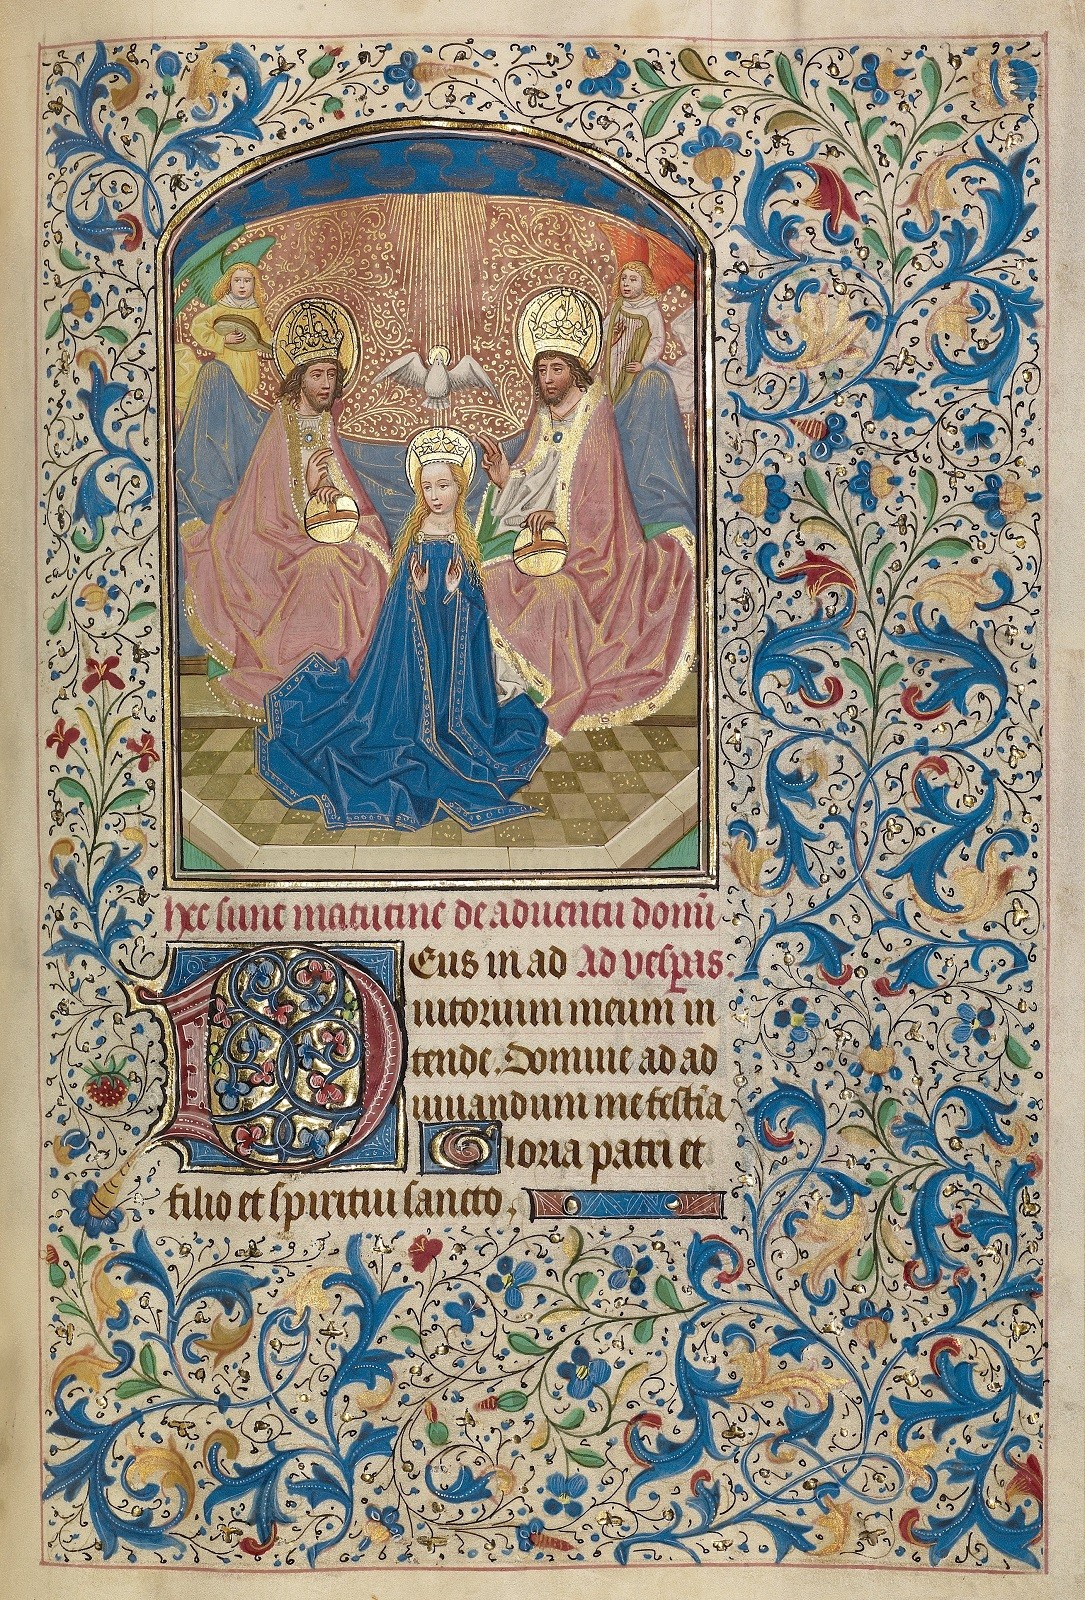 hec sunt matutine de aduentu domī
Deus in ad Ad vesp̄as.
iutorium meum in
tende. Domine ad ad
iuuandum me festīa
Gloria patri et
filio et spiritui sancto,